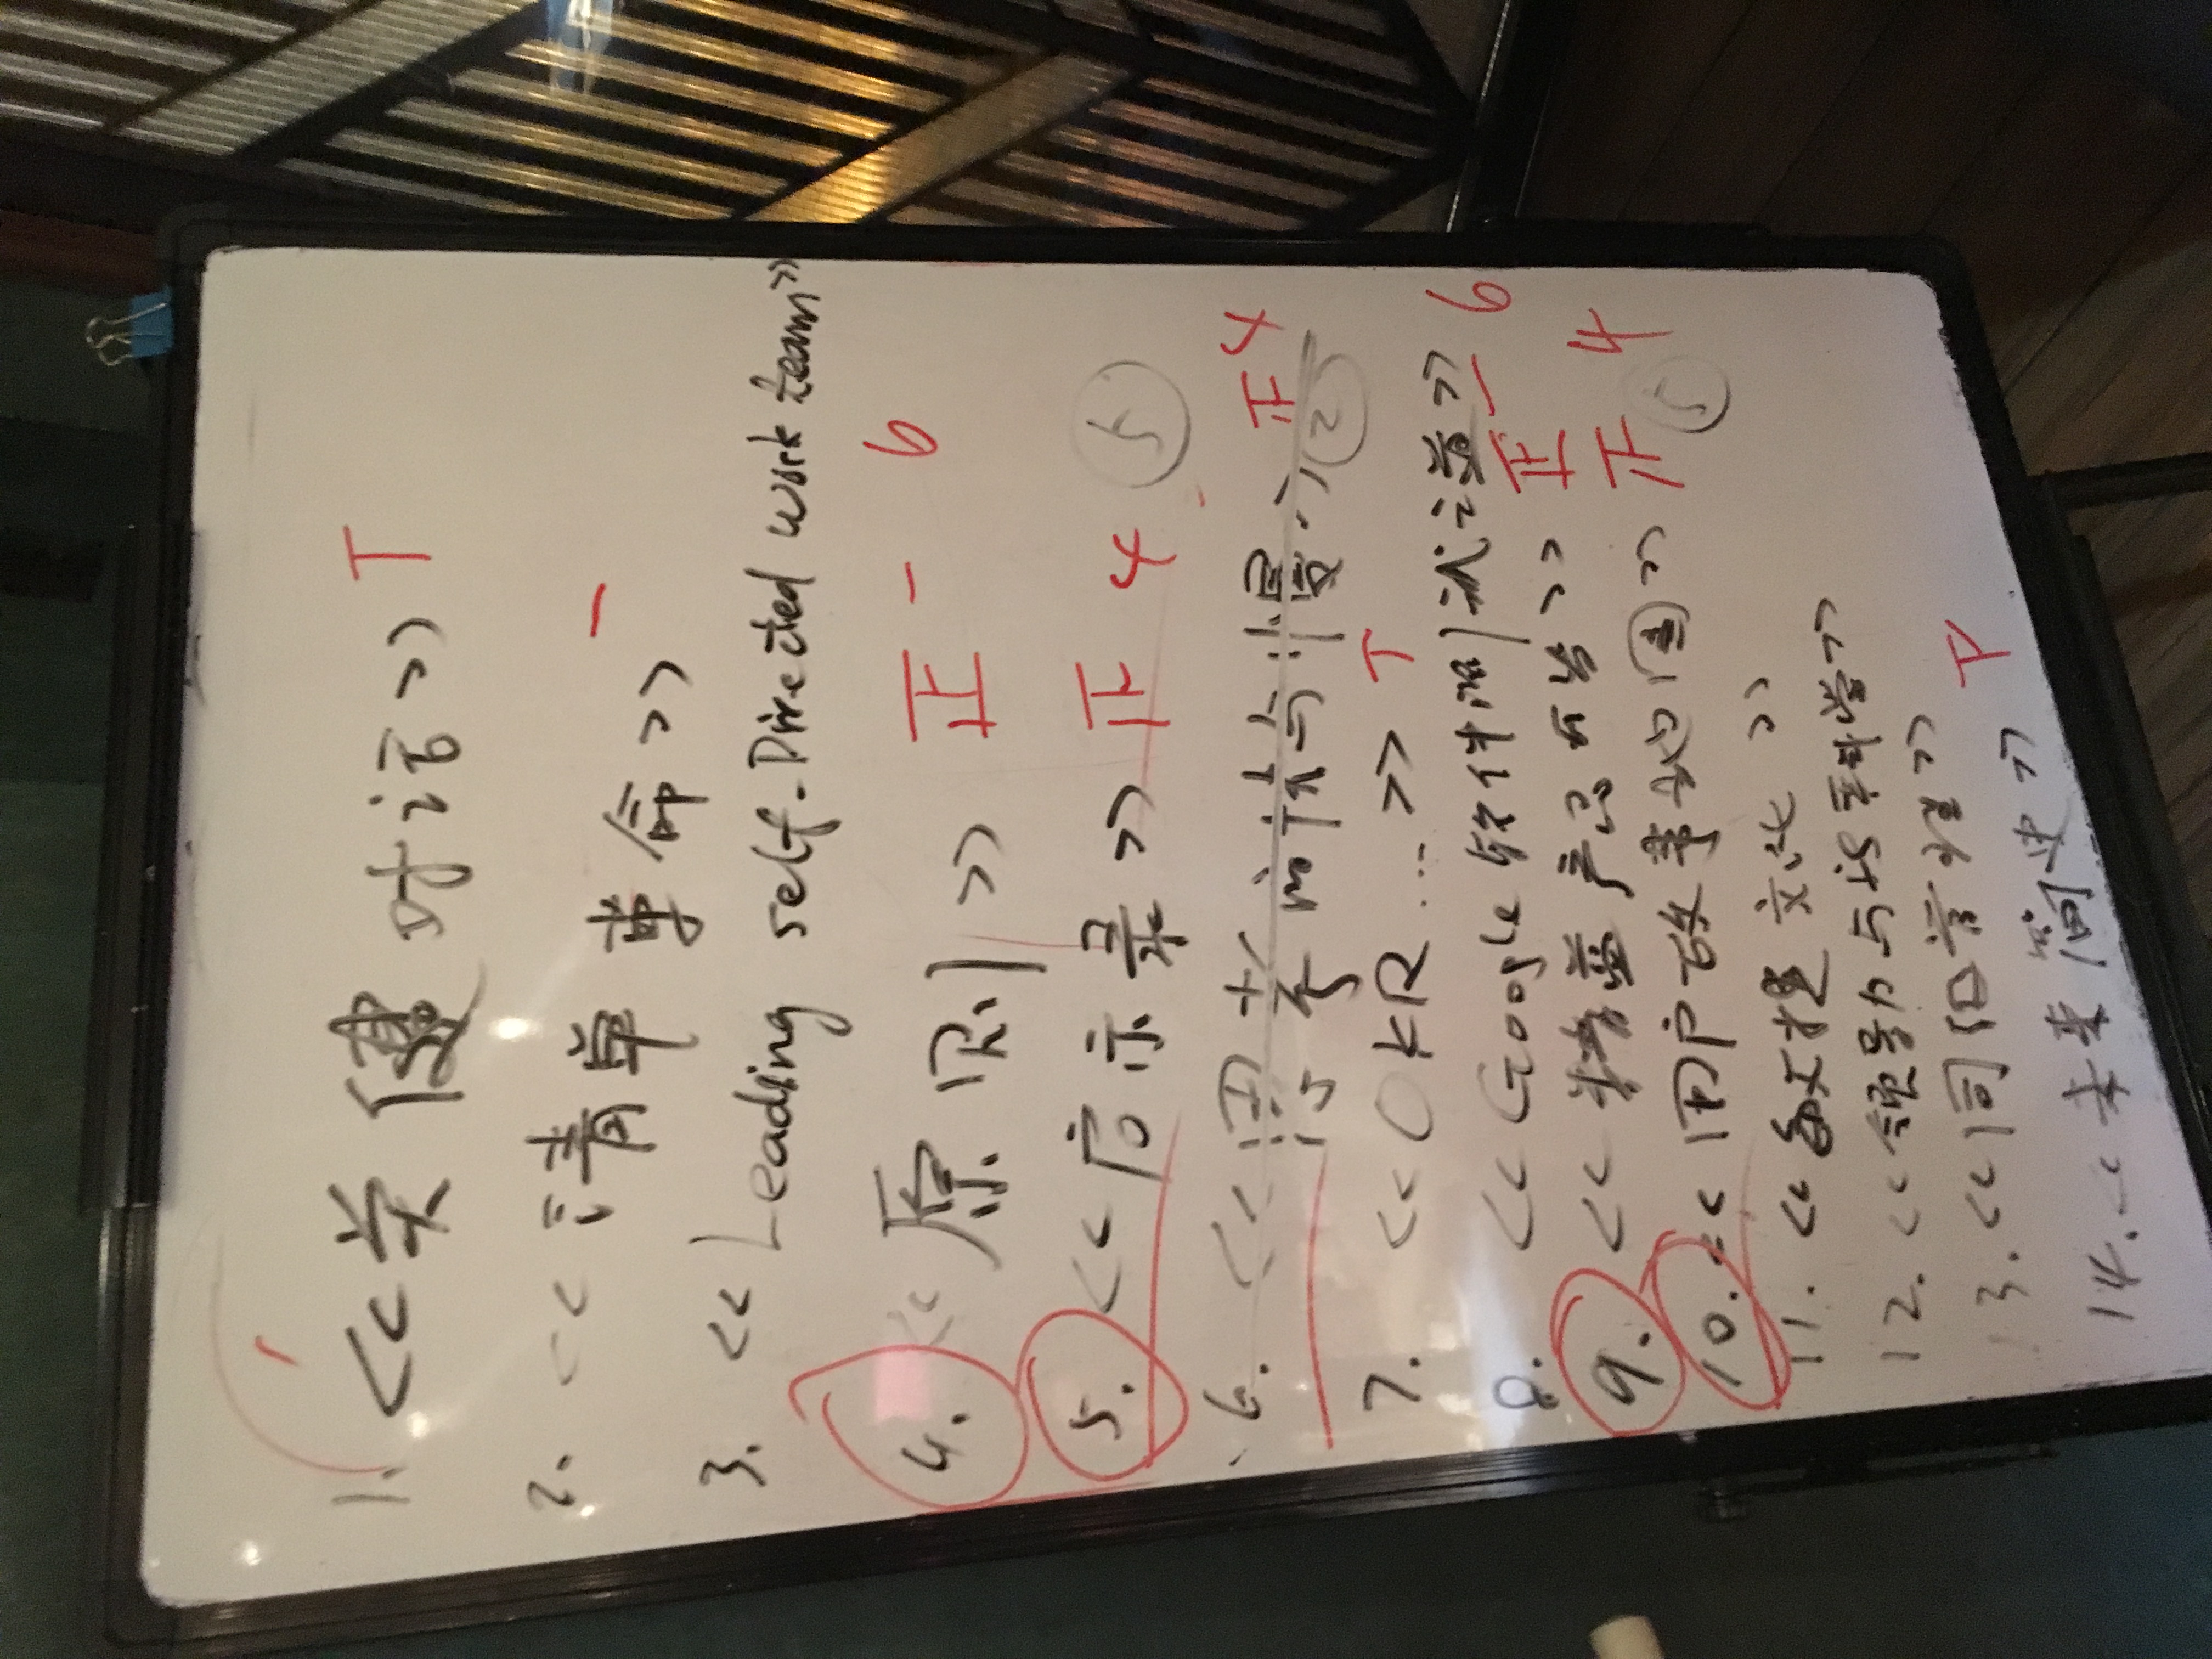 1. <<关健对话>> T
2. <<清单革命>> 一
3. <<Leading self-Directed work team>>
4. <<原则>> 正一 6
5. <<启示录>> 正 4 5
6. <<思考的快与慢>> 正 4 2
7. <<OKR...>> T
8. <<Google软件测试之道>>
9. <<精益产品开发>> 正一 6
10. <<用户故事地图>> 正 4 5
11. <<敏捷文化>>
12. <<领导力与新科学>>
13. <<同侪管理>>
14. <<未来简史>> 下